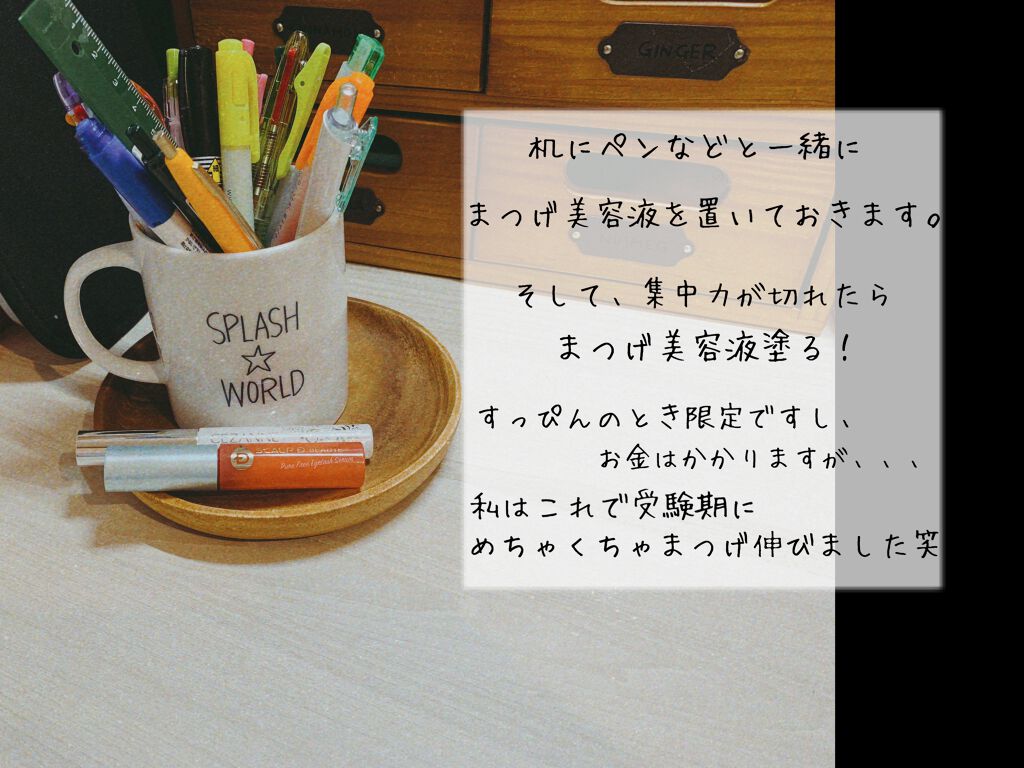 GINGER
机にペンなどと一緒に
まつげ美容液を置いておきます。
そして、集中力が切れたら
まつげ美容液塗る！
すっぴんのとき限定ですし、
お金はかかりますが、、、
私はこれで受験期に
めちゃくちゃまつげ伸びました笑
SPLASH
☆
WORLD
CEZANNE
SCALP D BEAUTÉ
Pure Free Eyelash Serum
1 2 3 4